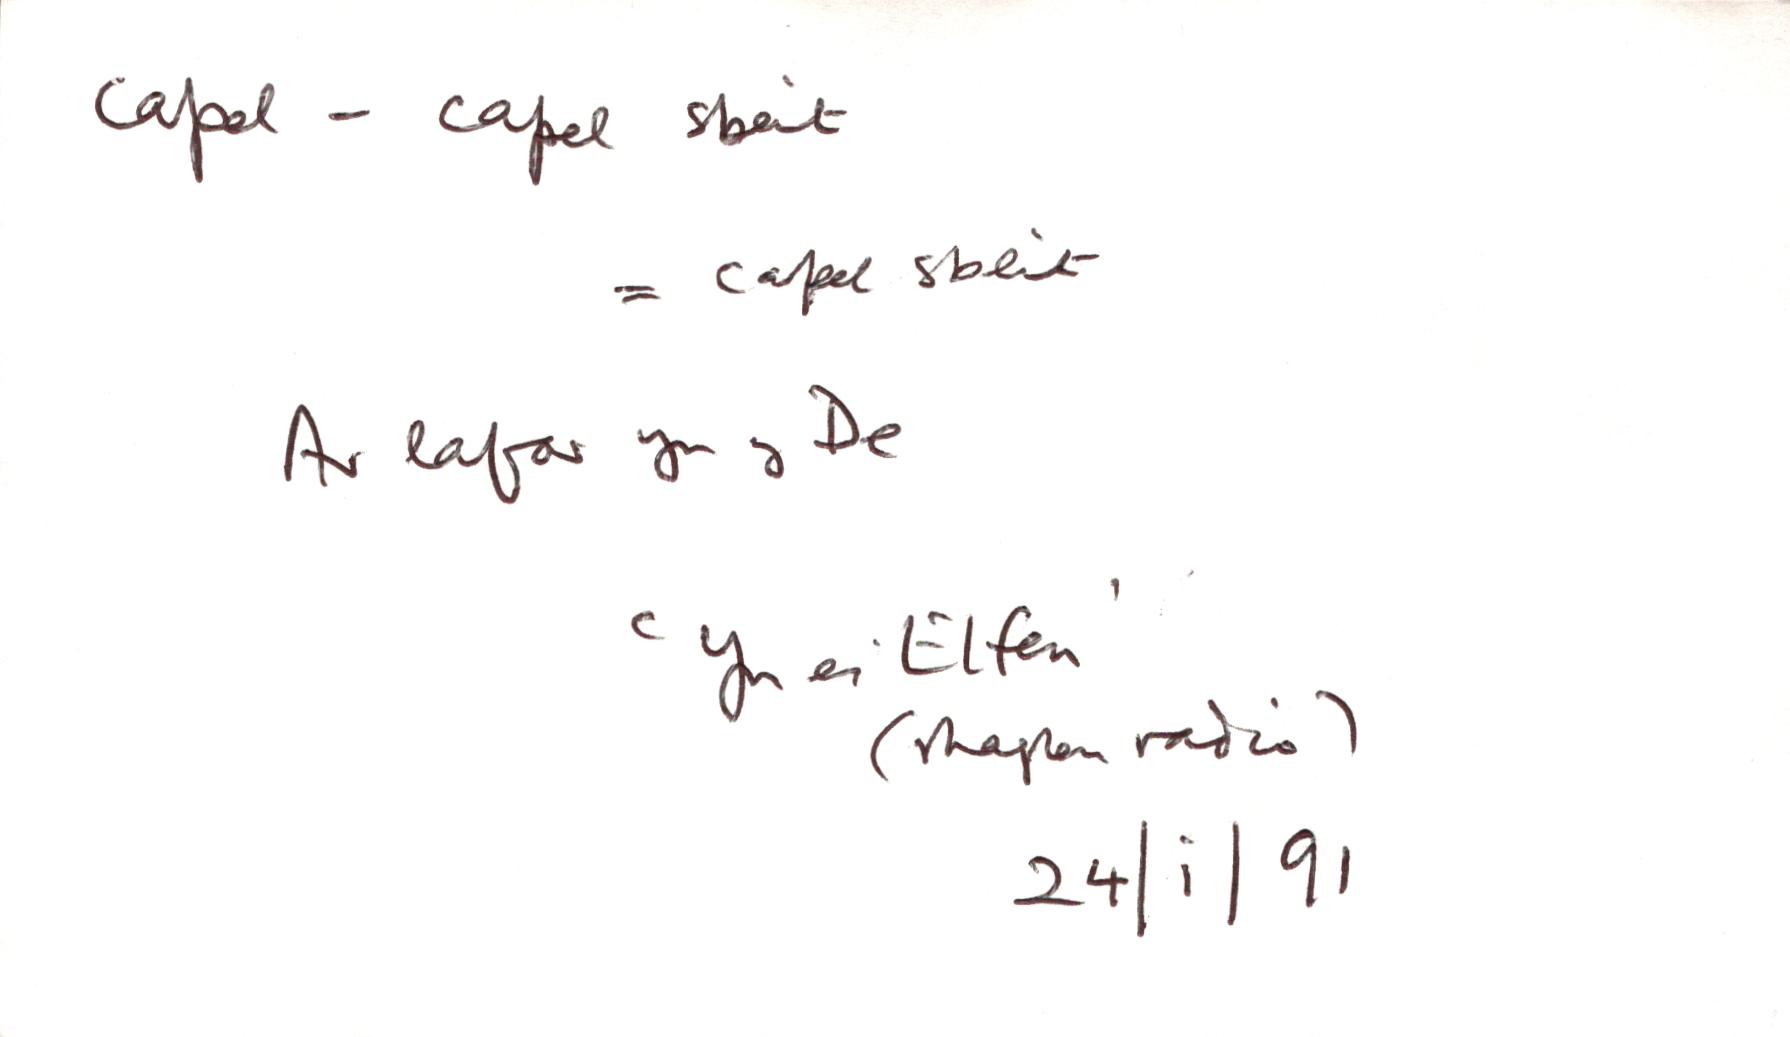 capel - capel sbeit
= capel sbleit
Ar lafar yn y De
'Yn ei Elfen'
(rhaglen radio)
24/i/91